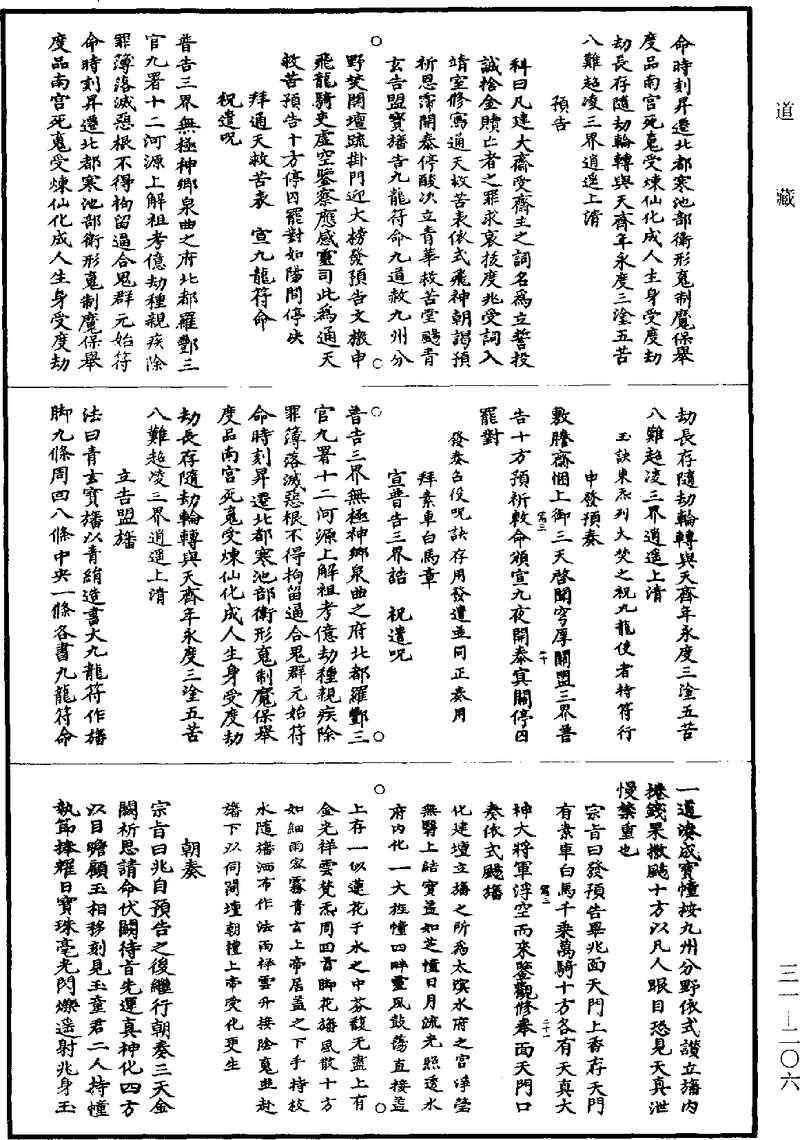 道藏
命時刻昇遷北都寒池部衛形䰟制魔保舉
度品南宫死䰟受煉仙化成人生身受度劫
劫長存隨劫輪轉與天齊年永度三塗五苦
八難超凌三界逍遥上清
預告
科曰凡建大齋受齋主之詞名為立誓投
誠捨金贖亡者之罪求哀拔度兆受詞入
靖室修寫通天救苦表依式飛神朝謁預
祈恩霈開泰停酸次立青華救苦堂颺青
玄告盟寶旛告九龍符命九道赦九州分
野焚関壇䟽掛門迎大榜發預告文檄申
飛龍騎吏虚空鑒察應感靈司此為通天
救苦預告十方停囚罷對如陽間停决
拜通天救苦表 宣九龍符命
祝遣呪
普告三界無極神鄉泉曲之府北都羅酆三
官九署十二河源上解祖考億劫種親疾除
罪簿落滅惡根不得拘留逼合鬼群元始符
命時刻昇遷北都寒池部衛形䰟制魔保舉
度品南宫死䰟受煉仙化成人生身受度劫
劫長存隨劫輪轉與天齊年永度三塗五苦
八難超凌三界逍遥上清
玉訣東炁列大焚之祝九龍使者持符行
申發預奏
敷牋齋悃上御三天啓聞穹厚関盟三界普
告十方預祈敕命頒宣九夜開泰冥關停囚
罷對
發奏召役呪訣存用發遣並同正奏用
拜素車白馬章
宣普告三界誥 祝遣呪
普告三界無極神鄉泉曲之府北都羅酆三
官九署十二河源上解祖考億劫種親疾除
罪簿落滅惡根不得拘留逼合鬼群元始符
命時刻昇遷北都寒池部衛形䰟制魔保舉
度品南宫死䰟受煉仙化成人生身受度劫
劫長存隨劫輪轉與天齊年永度三塗五苦
八難超凌三界逍遥上清
立告盟旛
法曰青玄寶旛以青綃造書大九龍符作旛
脚九條周四八條中央一條各書九龍符命
一道湊成寶幢按九州分野依式護立旛内
捲錢果撒颺十方以凡人眼目恐見天真泄
慢禁重也
宗旨曰發預告畢兆面天門上香存天門
有素車白馬千乗萬騎十方各有天真大
神大將軍浮空而來鑒觀修奉面天門口
奏依式颺旛
化建壇立旛之所為太溟水府之宫淨瑩
無翳上結寶蓋如芝幢日月流光照透水
府内化一大柱幢四畔靈風鼓蕩直接蓋
上存一似蓮花于水之中芬馥无盡上有
金光祥雲梵炁周四首脚花旛風散十方
如細雨密霧青玄上帝居蓋之下手持枝
水隨旛洒布作法雨祥雲升接陰䰟並赴
旛下以伺関壇朝禮上帝受化更生
朝奏
宗旨曰兆自預告之後繼行朝奏三天金
闕祈恩請命伏闕待首先運真神化四方
以目瞻顧玉相移刻見玉童君二人持幢
執節捧耀日寶珠毫光閃爍遥射兆身玉
三一—二〇六